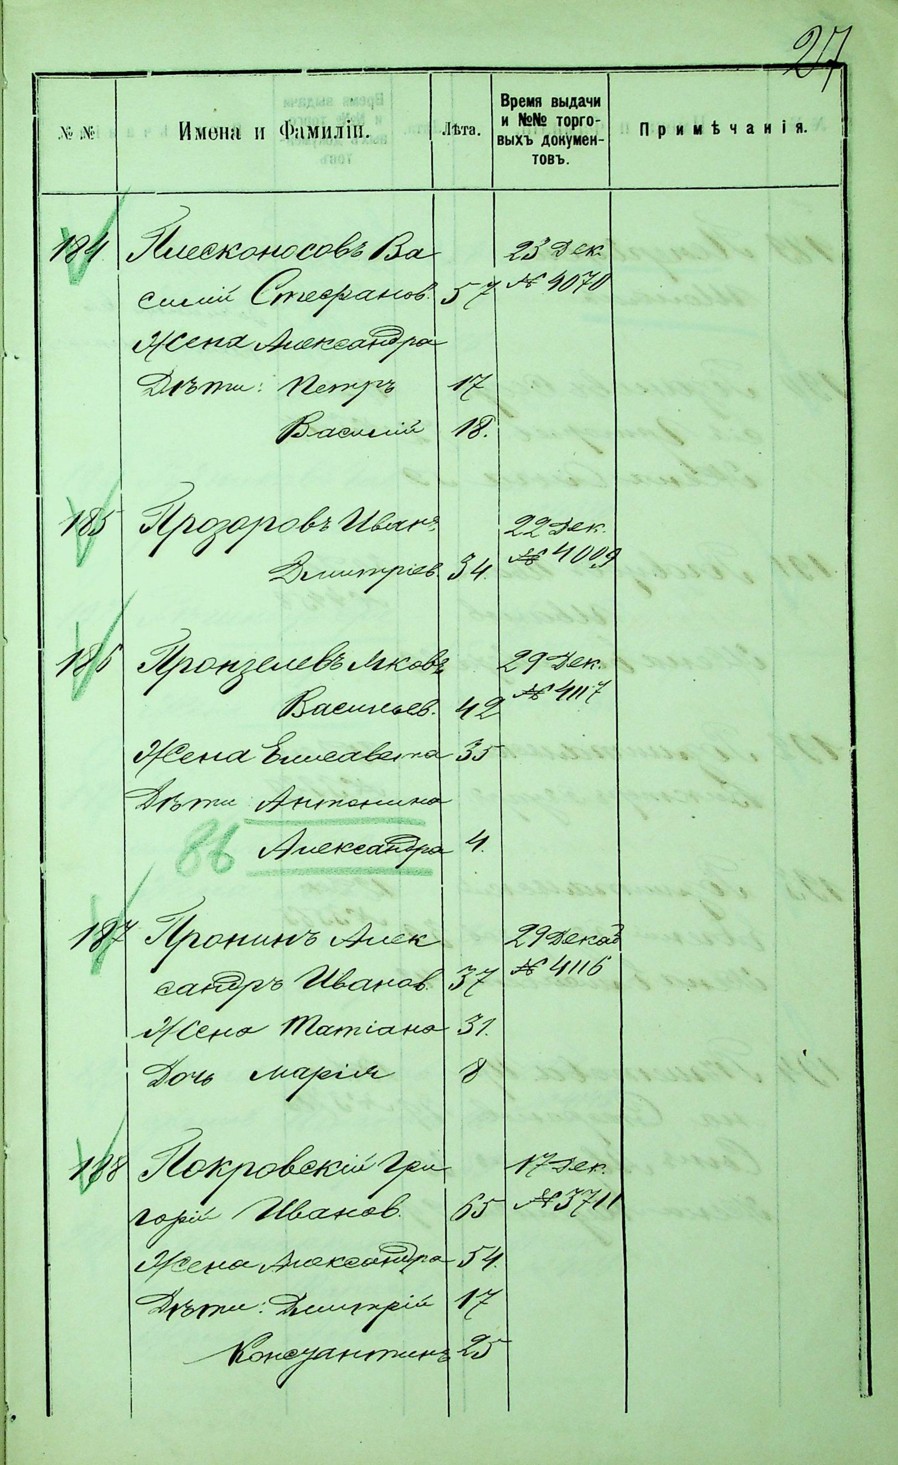 27
№ №
Имена и Фамиліи.
Лѣта.
Время выдачи
и №№ торго-
выхъ докумен-
товъ.
Примѣчанія.
184 Плесконосовъ Ва 23 Дек.
силій Стефанов. 57 № 4070
Жена Александра
Дѣти: Петръ 17
Василій 18.
185 Прозоровъ Иванъ 22 Дек.
Дмитріев. 34. № 4009
186 Пронзелевъ Яковъ 29 Дек.
Васильев. 42 № 4117
Жена Елисавета 35
Дѣти Антонина
86 Александра 4.
187 Пронинъ Алек 29 Декаб
сандръ Иванов. 37 № 4116
Жена Татіана 31.
Дочь Марія 8
188 Покровскій Гри 17 Дек.
горій Иванов. 65 № 3711
Жена Александра 54.
Дѣти: Дмитрій 17
Константинъ 25